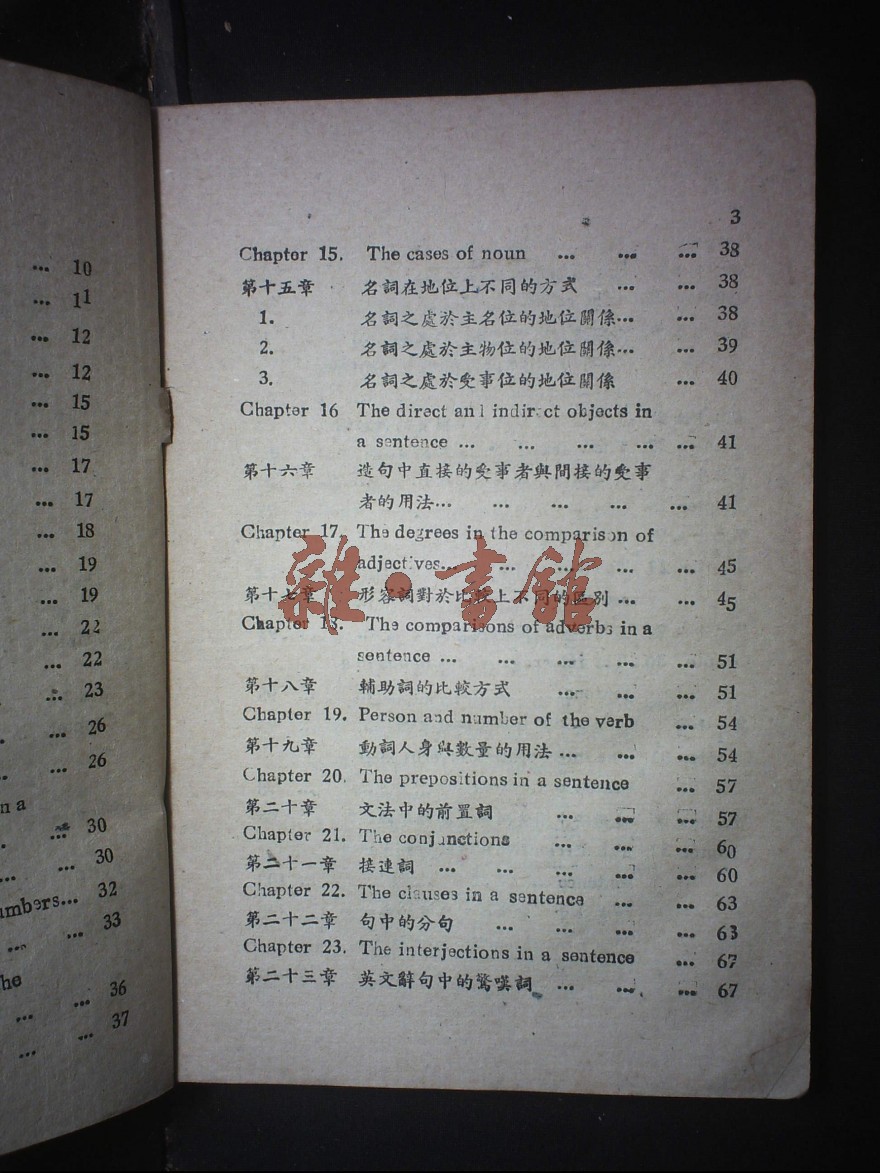 ... 10
... 11
... 12
... 12
... 15
... 15
... 17
... 17
... 18
... 19
... 19
... 22
... 22
... 23
... 26
... 26
n a
... 30
... 30
umbers... 32
... ... 33
he
... ... 36
... ... 37
3
Chapter 15. The cases of noun ... ... ... 38
第十五章 名詞在地位上不同的方式 ... ... 38
1. 名詞之處於主名位的地位關係... ... 38
2. 名詞之處於主物位的地位關係... ... 39
3. 名詞之處於受事位的地位關係 ... 40
Chapter 16 The direct an l indirect objects in
a sentence ... ... ... ... ... 41
第十六章 造句中直接的受事者與間接的受事
者的用法... ... ... ... ... 41
Chapter 17. The degrees in the comparison of
adjectives... ... ... ... ... 45
第十七章 形容詞對於比較上不同的區別 ... ... 45
Chapter 18. The comparisons of adverbs in a
sentence ... ... ... ... ... 51
第十八章 輔助詞的比較方式 ... ... ... 51
Chapter 19. Person and number of the verb ... 54
第十九章 動詞人身與數量的用法 ... ... ... 54
Chapter 20. The prepositions in a sentence ... 57
第二十章 文法中的前置詞 ... ... ... 57
Chapter 21. The conjunctions ... ... ... 60
第二十一章 接連詞 ... ... ... ... ... 60
Chapter 22. The clauses in a sentence ... ... 63
第二十二章 句中的分句 ... ... ... ... 63
Chapter 23. The interjections in a sentence ... 67
第二十三章 英文辭句中的驚嘆詞 ... ... ... 67
雜·書館